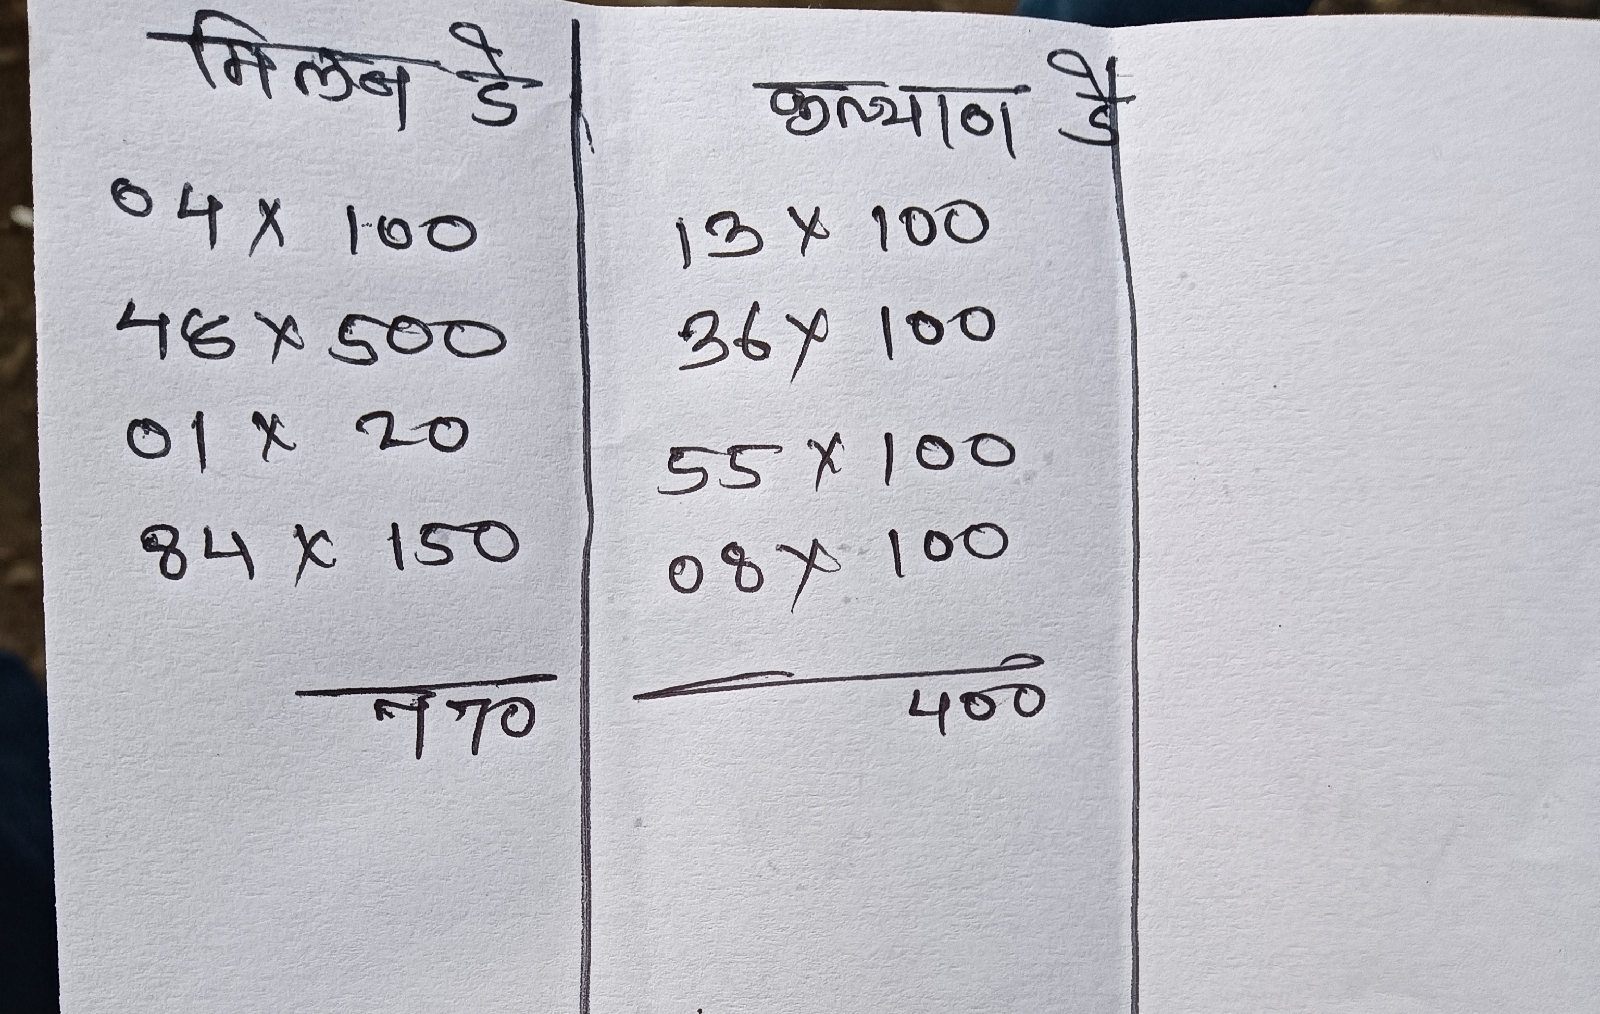 मिलन डे
04 x 100
46 x 500
01 x 20
84 x 150
770
कल्याण डे
13 x 100
36 x 100
55 x 100
08 x 100
400